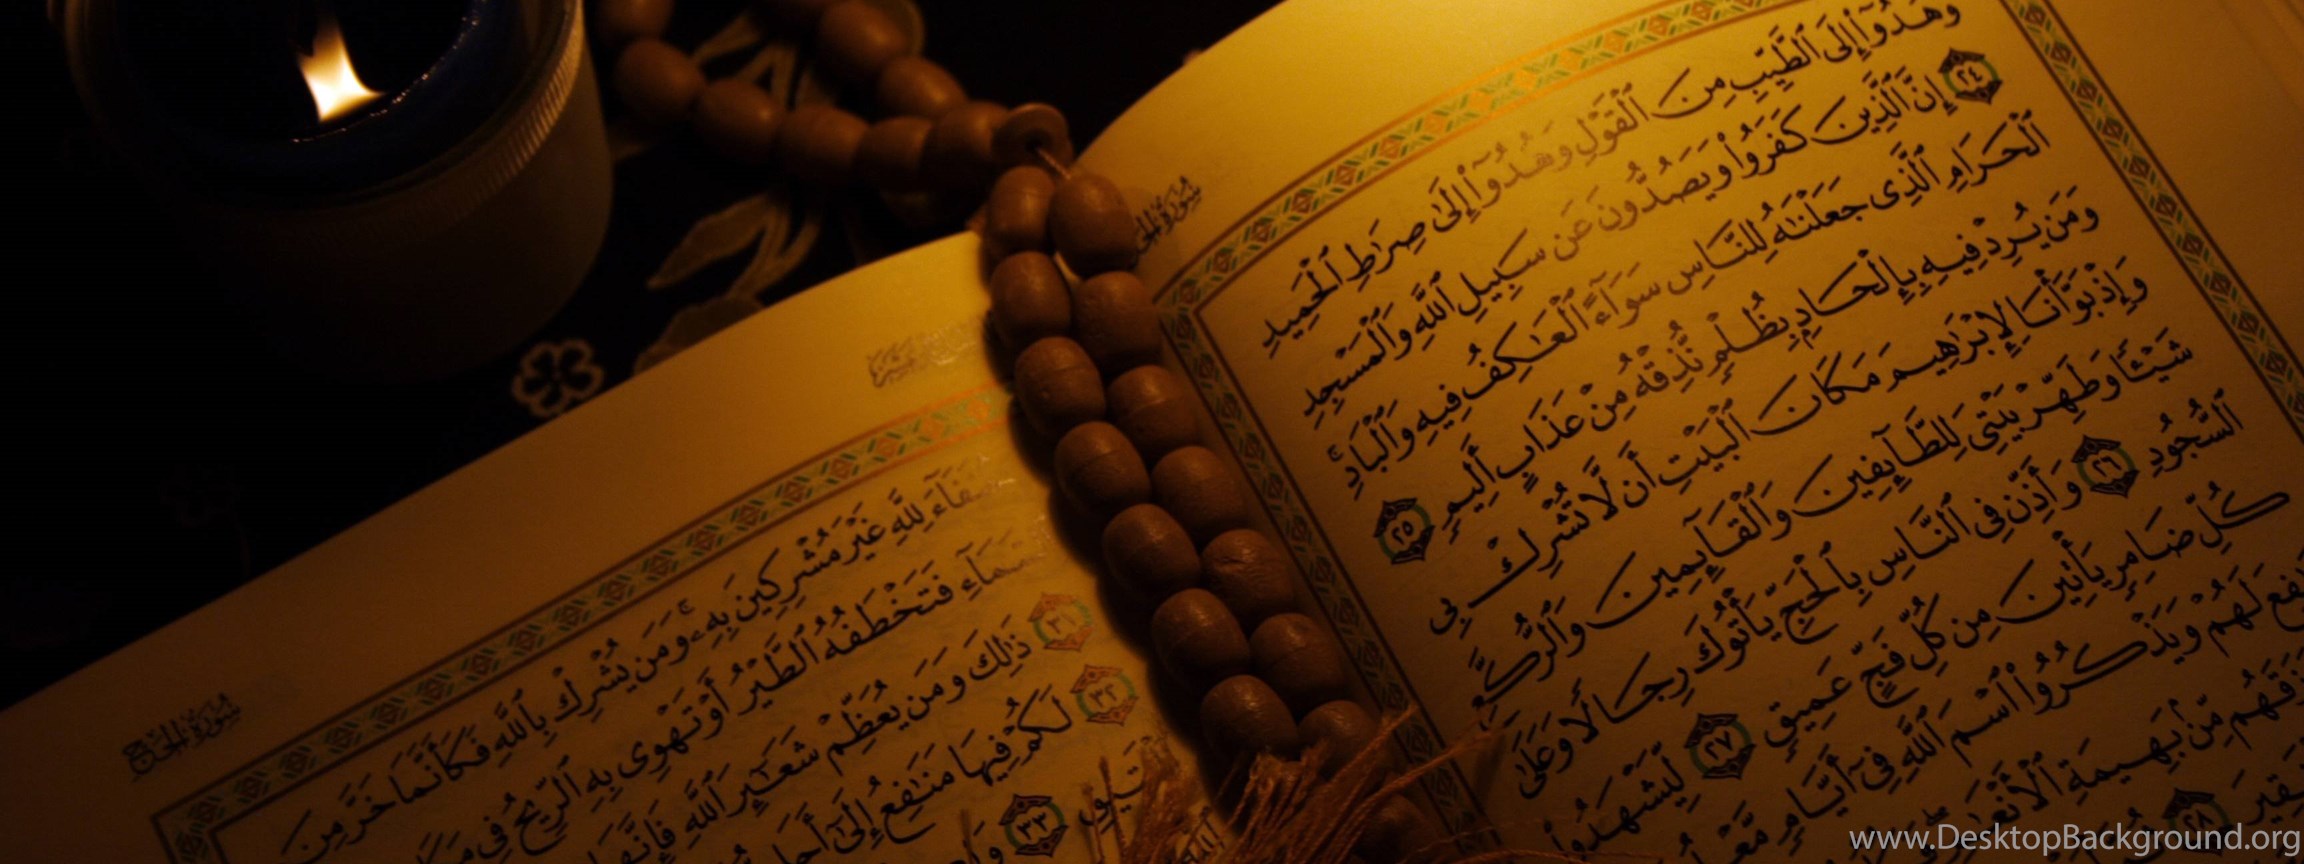 سُورَةُ الحَجّ
وَهُدُوٓا۟ إِلَى ٱلطَّيِّبِ مِنَ ٱلْقَوْلِ وَهُدُوٓا۟ إِلَىٰ صِرَٰطِ ٱلْحَمِيدِ
٢٤ إِنَّ ٱلَّذِينَ كَفَرُوا۟ وَيَصُدُّونَ عَن سَبِيلِ ٱللَّهِ وَٱلْمَسْجِدِ
ٱلْحَرَامِ ٱلَّذِى جَعَلْنَٰهُ لِلنَّاسِ سَوَآءً ٱلْعَٰكِفُ فِيهِ وَٱلْبَادِ ۚ
وَمَن يُرِدْ فِيهِ بِإِلْحَادٍۭ بِظُلْمٍ نُّذِقْهُ مِنْ عَذَابٍ أَلِيمٍ ٢٥
وَإِذْ بَوَّأْنَا لِإِبْرَٰهِيمَ مَكَانَ ٱلْبَيْتِ أَن لَّا تُشْرِكْ بِى
شَيْـًٔا وَطَهِّرْ بَيْتِىَ لِلطَّآئِفِينَ وَٱلْقَآئِمِينَ وَٱلرُّكَّعِ
ٱلسُّجُودِ ٢٦ وَأَذِّن فِى ٱلنَّاسِ بِٱلْحَجِّ يَأْتُوكَ رِجَالًا وَعَلَىٰ
كُلِّ ضَامِرٍ يَأْتِينَ مِن كُلِّ فَجٍّ عَمِيقٍ ٢٧ لِّيَشْهَدُوا۟
لَهُمْ وَيَذْكُرُوا۟ ٱسْمَ ٱللَّهِ فِىٓ أَيَّامٍ
مِّنۢ بَهِيمَةِ ٱلْأَنْعَٰمِ
٢٨
سُورَةُ الحَجّ
لِلَّهِ غَيْرَ مُشْرِكِينَ بِهِۦ ۚ وَمَن يُشْرِكْ بِٱللَّهِ فَكَأَنَّمَا خَرَّ مِنَ
ٱلسَّمَآءِ فَتَخْطَفُهُ ٱلطَّيْرُ أَوْ تَهْوِى بِهِ ٱلرِّيحُ فِى
٣١ ذَٰلِكَ وَمَن يُعَظِّمْ شَعَٰٓئِرَ ٱللَّهِ فَإِنَّهَا
٣٢ لَكُمْ فِيهَا مَنَٰفِعُ إِلَىٰٓ أَجَلٍ
٣٣
www.DesktopBackground.org